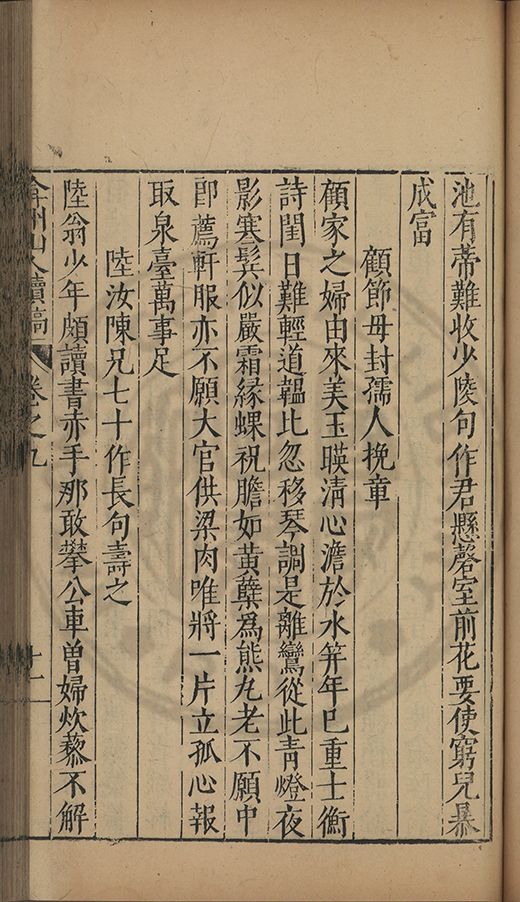 池有蒂難收少陵句作君懸磬室前花要使窮兒暴
成富
顧節母封孺人挽章
顧家之婦由來美玉暎淸心澹於水笄年已重士衡
詩閨日難輕道韞比忽移琴調是離鸞從此靑燈夜
影寒鬂似嚴霜緣蜾祝膽如黃蘗爲熊丸老不願中
郎薦軒服亦不願大官供粱肉唯將一片立孤心報
取泉臺萬事足
陸汝陳兄七十作長句壽之
陸翁少年頗讀書赤手那敢攀公車曽婦炊藜不解
弇州山人續稿 卷之九 十一